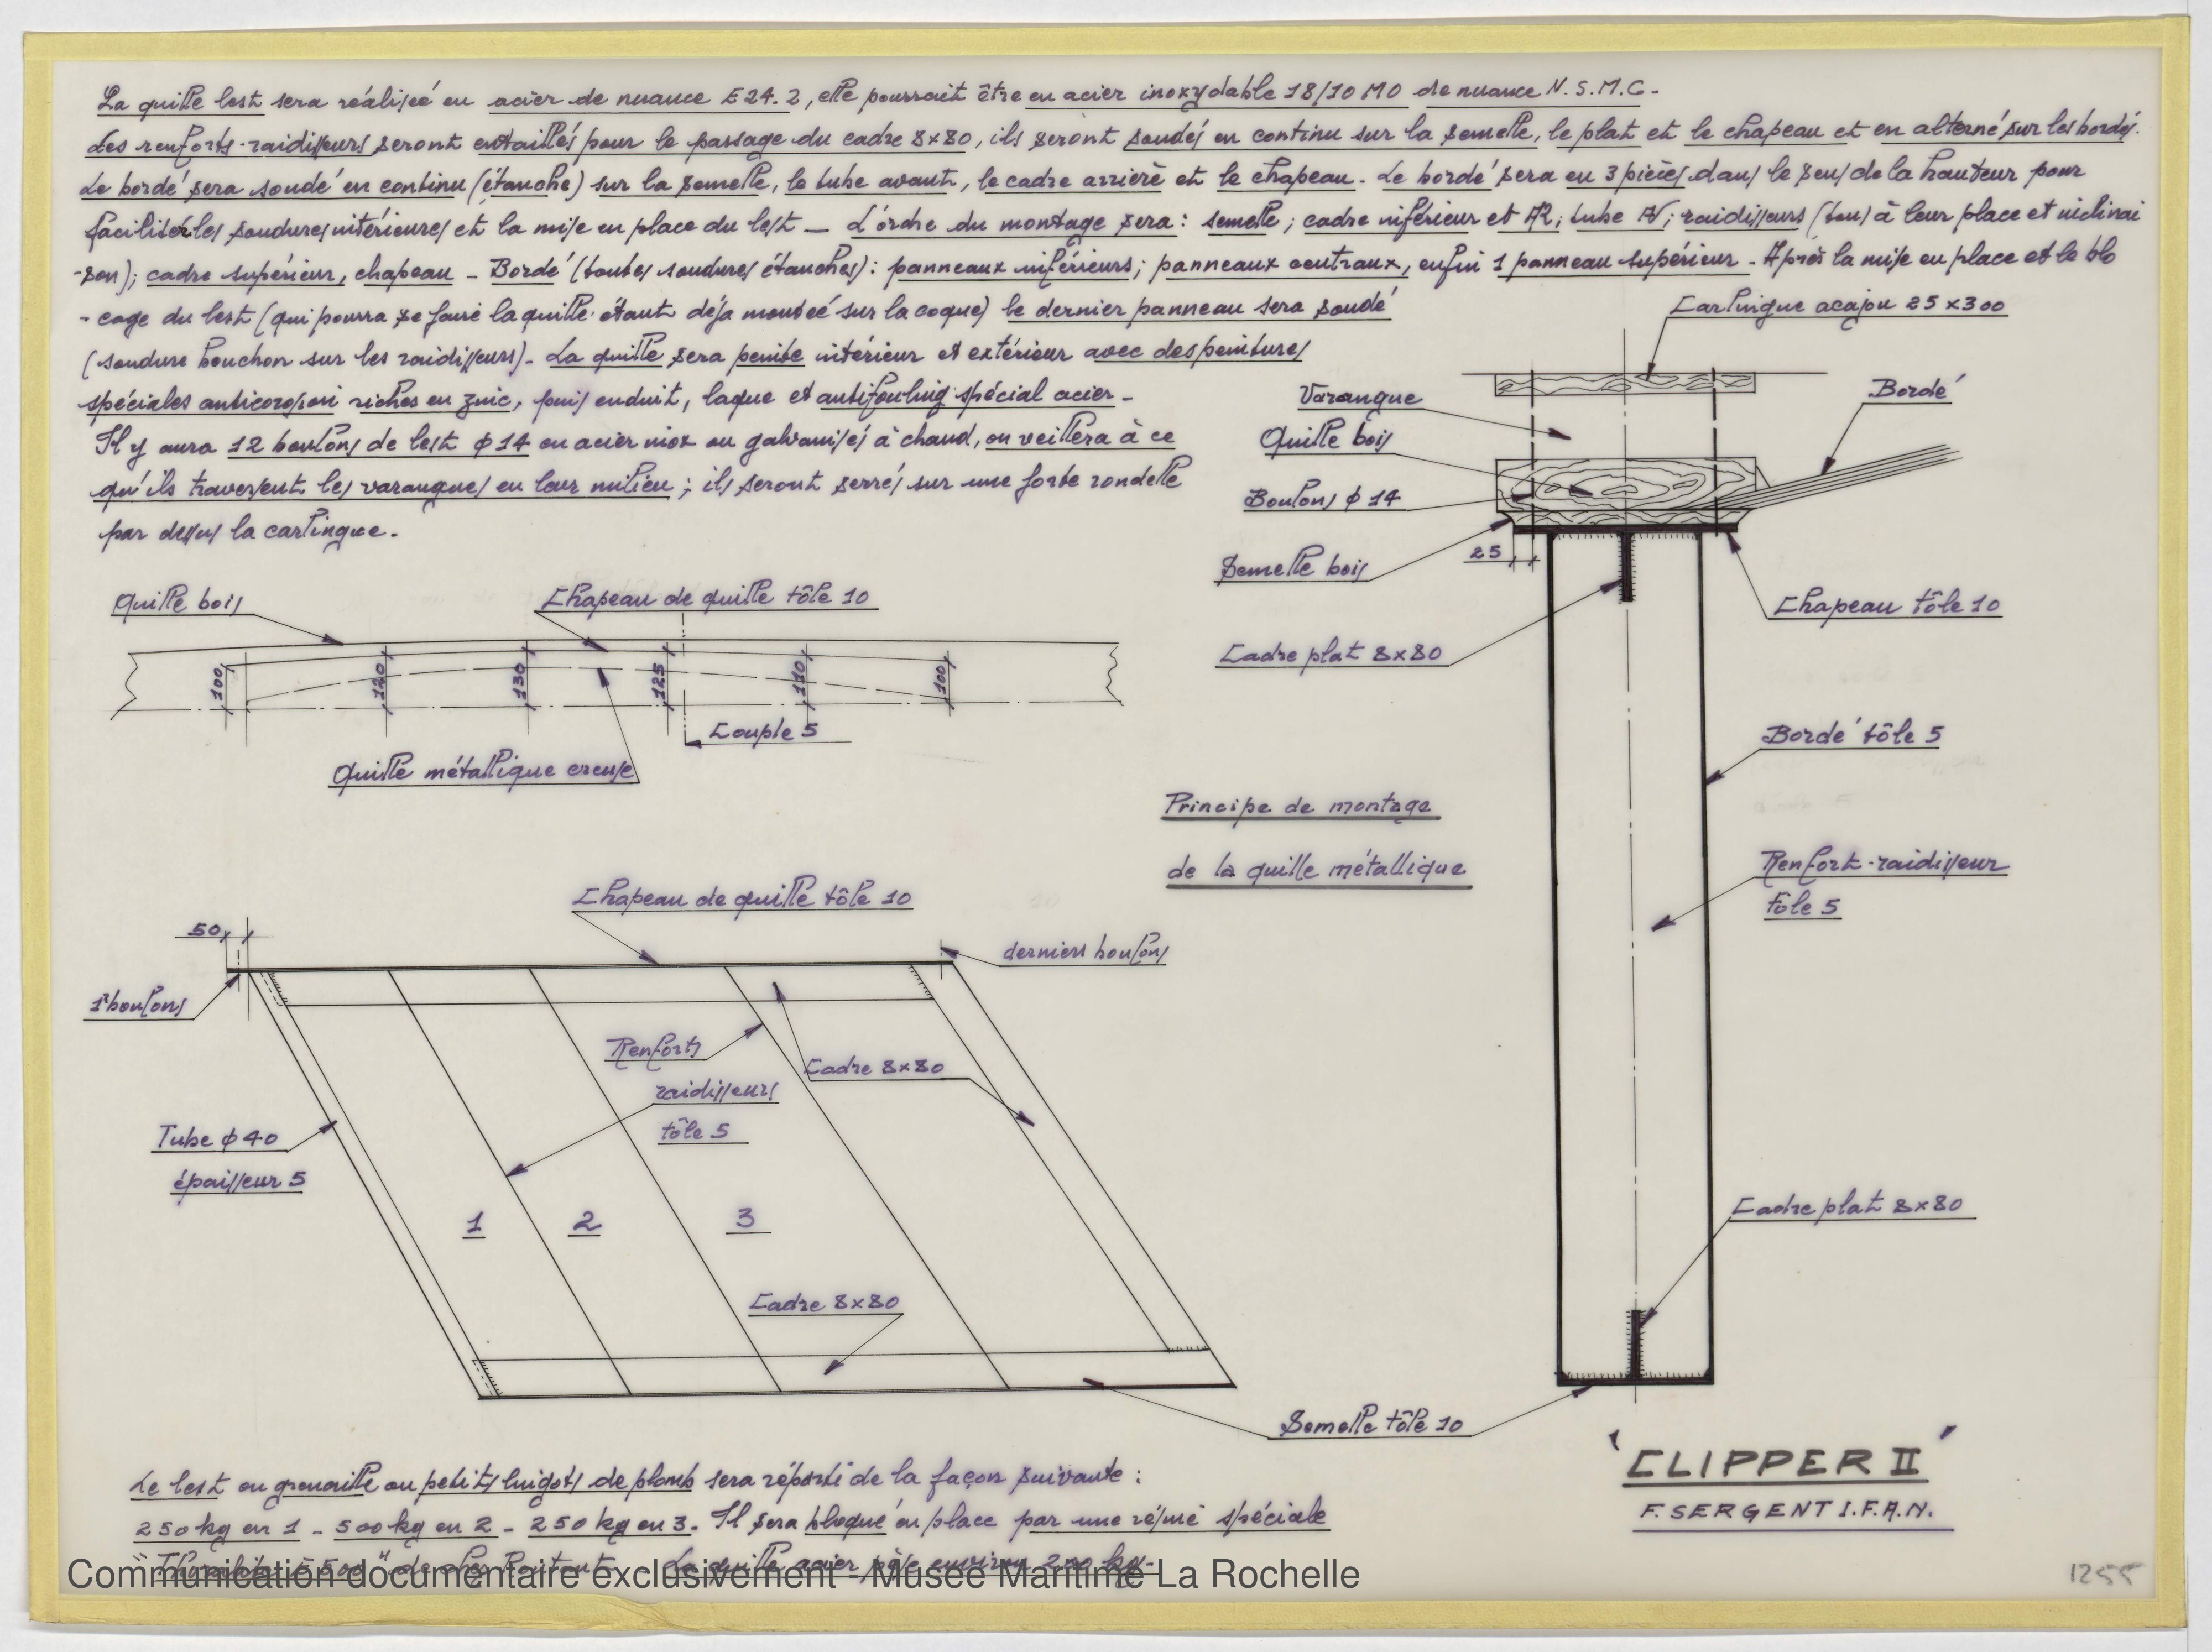 La quille lest sera réalisée en acier de nuance E24.2, elle pourrait être en acier inoxydable 18/10 MO de nuance N.S.M.C.
Les renforts-raidisseurs seront entaillés pour le passage du cadre 8x80, ils seront soudés en continu sur la semelle, le plat et le chapeau et en alterné sur les bordés.
Le bordé sera soudé en continu (étanche) sur la semelle, le tube avant, le cadre arrière et le chapeau. Le bordé sera en 3 pièces dans le sens de la hauteur pour
faciliter les soudures intérieures et la mise en place du lest _ L'ordre du montage sera : semelle ; cadre inférieur et AR ; tube AV ; raidisseurs (tous à leur place et inclinai
-son) ; cadre supérieur, chapeau _ Bordé (toutes soudures étanches) : panneaux inférieurs ; panneaux centraux, enfin 1 panneau supérieur. Après la mise en place et le blo
-cage du lest (qui pourra se faire la quille étant déja montée sur la coque) le dernier panneau sera soudé
(soudure bouchon sur les raidisseurs). La quille sera peinte intérieur et extérieur avec des peintures
spéciales anticorosion riches en zinc, puis enduit, laque et antifouling spécial acier _
Il y aura 12 boulons de lest ϕ14 en acier inox ou galvanisés à chaud, on veillera à ce
qu'ils traversent les varangues en leur milieu ; ils seront serrés sur une forte rondelle
par dessus la carlingue.
Carlingue acajou 25 x300
Varangue
Bordé
Quille bois
Boulons ϕ 14
Semelle bois
25
Chapeau tôle 10
Cadre plat 8x80
Bordé tôle 5
Renfort-raidisseur
tôle 5
Cadre plat 8x80
Quille bois
Chapeau de quille tôle 10
100
120
130
125
110
100
Couple 5
Quille métallique creuse
Principe de montage
de la quille métallique
Chapeau de quille tôle 10
50
derniers boulons
1er boulons
Renforts
raidisseurs
tôle 5
Cadre 8x80
Tube ϕ 40
épaisseur 5
1
2
3
Cadre 8x80
Semelle tôle 10
Le lest en grenaille ou petits lingots de plomb sera réparti de la façon suivante :
250 kg en 1 _ 500 kg en 2 _ 250 kg en 3. Il sera bloqué en place par une résine spéciale
La quille acier pèse environ 200 kg.
'CLIPPER II'
F. SERGENT I.F.A.N.
Communication documentaire exclusivement - Musée Maritime La Rochelle
1255